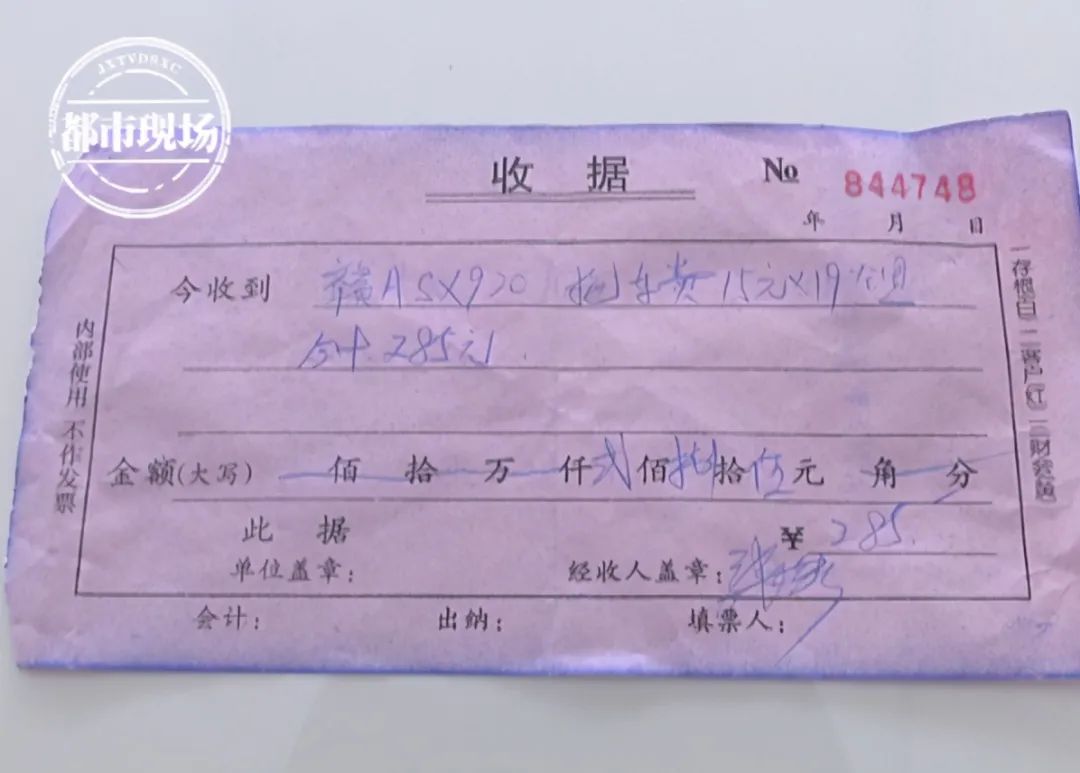 JXTVDSXC
都市现场
收 据
No 844748
年 月 日
今收到 赣A5X920 拖车费15元×19公里
合计285元
金额(大写) 佰 拾 万 仟 贰 佰 捌 拾 伍 元 角 分
此 据 ¥ 285.
单位盖章: 经收人盖章:
会计: 出纳: 填票人:
内部使用 不作发票
一存根(白) 二客户(红) 三财务(蓝)